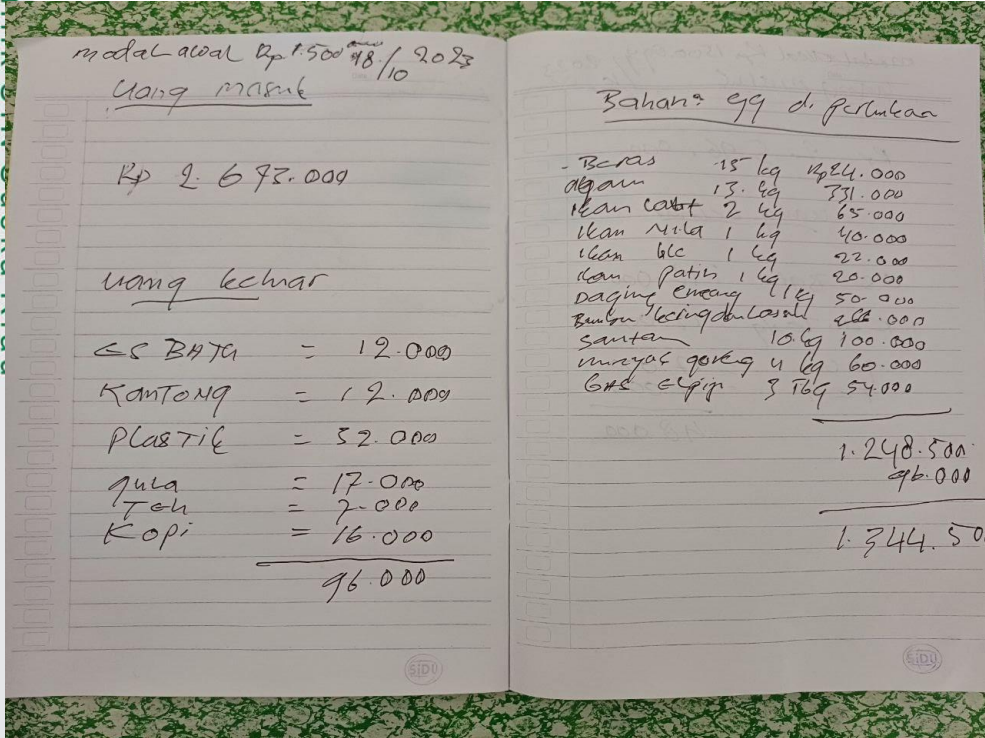 modal awal Rp 1.500.000 18/10 2023
uang masuk
Rp 2.673.000
uang keluar
ES BATU = 12.000
KANTONG = 12.000
PLASTIK = 32.000
gula = 17.000
Teh = 7.000
Kopi = 16.000
96.000
SIDU
Bahan² yg di perlukan
- Beras 15 kg Rp 24.000
ayam 13 kg 331.000
ikan laut 2 kg 65.000
ikan Nila 1 kg 40.000
ikan lele 1 kg 22.000
ikan patin 1 kg 20.000
Daging 1 kg 50.000
Bumbu kering dan basah 266.000
santan 10 kg 100.000
minyak goreng 4 kg 60.000
GAS Elpiji 3 Tbg 54.000
1.248.500
96.000
1.344.50
SIDU